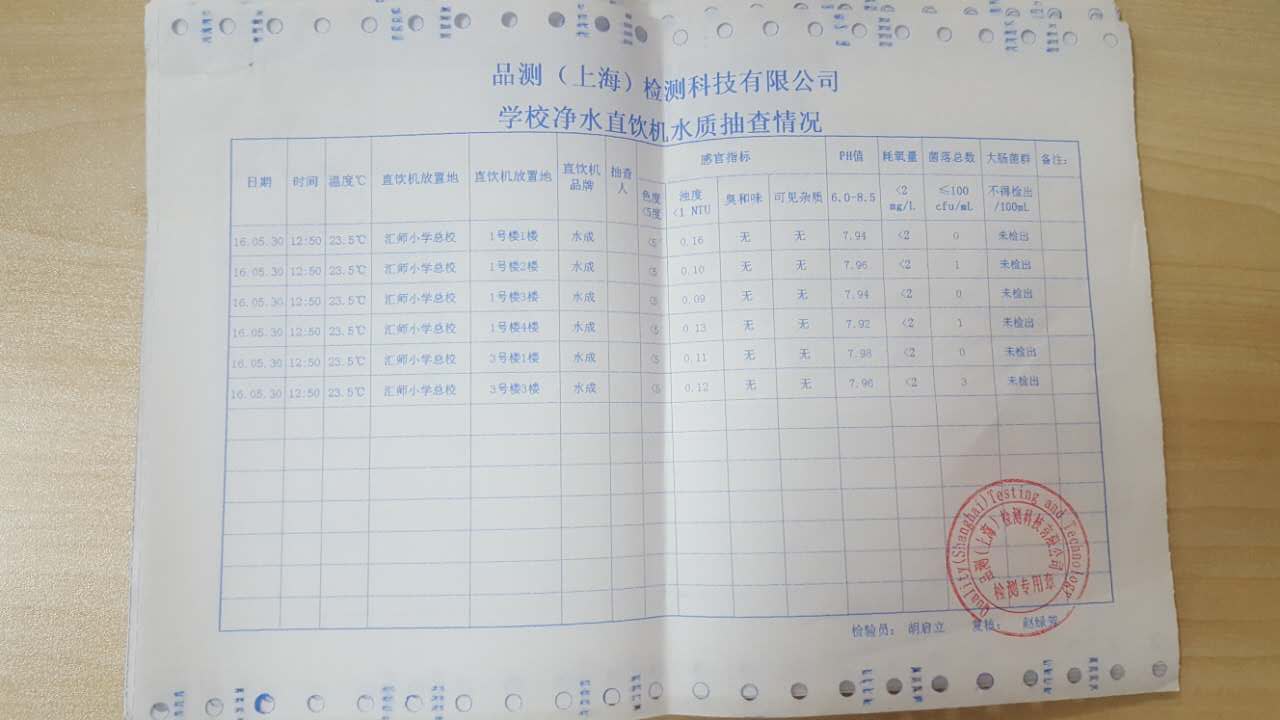 品测（上海）检测科技有限公司
学校净水直饮机水质抽查情况
日期 时间 温度℃ 直饮机放置地 直饮机放置地 直饮机品牌 抽查人 感官指标 PH值 耗氧量 菌落总数 大肠菌群 备注：
色度<5度 浊度<1 NTU 臭和味 可见杂质 6.0-8.5 <2 mg/L ≤100 cfu/mL 不得检出/100mL
16.05.30 12:50 23.5℃ 汇师小学总校 1号楼1楼 水成 <5 0.16 无 无 7.94 <2 0 未检出
16.05.30 12:50 23.5℃ 汇师小学总校 1号楼2楼 水成 <5 0.10 无 无 7.96 <2 1 未检出
16.05.30 12:50 23.5℃ 汇师小学总校 1号楼3楼 水成 <5 0.09 无 无 7.94 <2 0 未检出
16.05.30 12:50 23.5℃ 汇师小学总校 1号楼4楼 水成 <5 0.13 无 无 7.92 <2 1 未检出
16.05.30 12:50 23.5℃ 汇师小学总校 3号楼1楼 水成 <5 0.11 无 无 7.98 <2 0 未检出
16.05.30 12:50 23.5℃ 汇师小学总校 3号楼3楼 水成 <5 0.12 无 无 7.96 <2 3 未检出
Quality(Shanghai)Testing and Technology
品测（上海）检测科技有限公司
检测专用章
检验员： 胡启立 复核： 赵绿芳